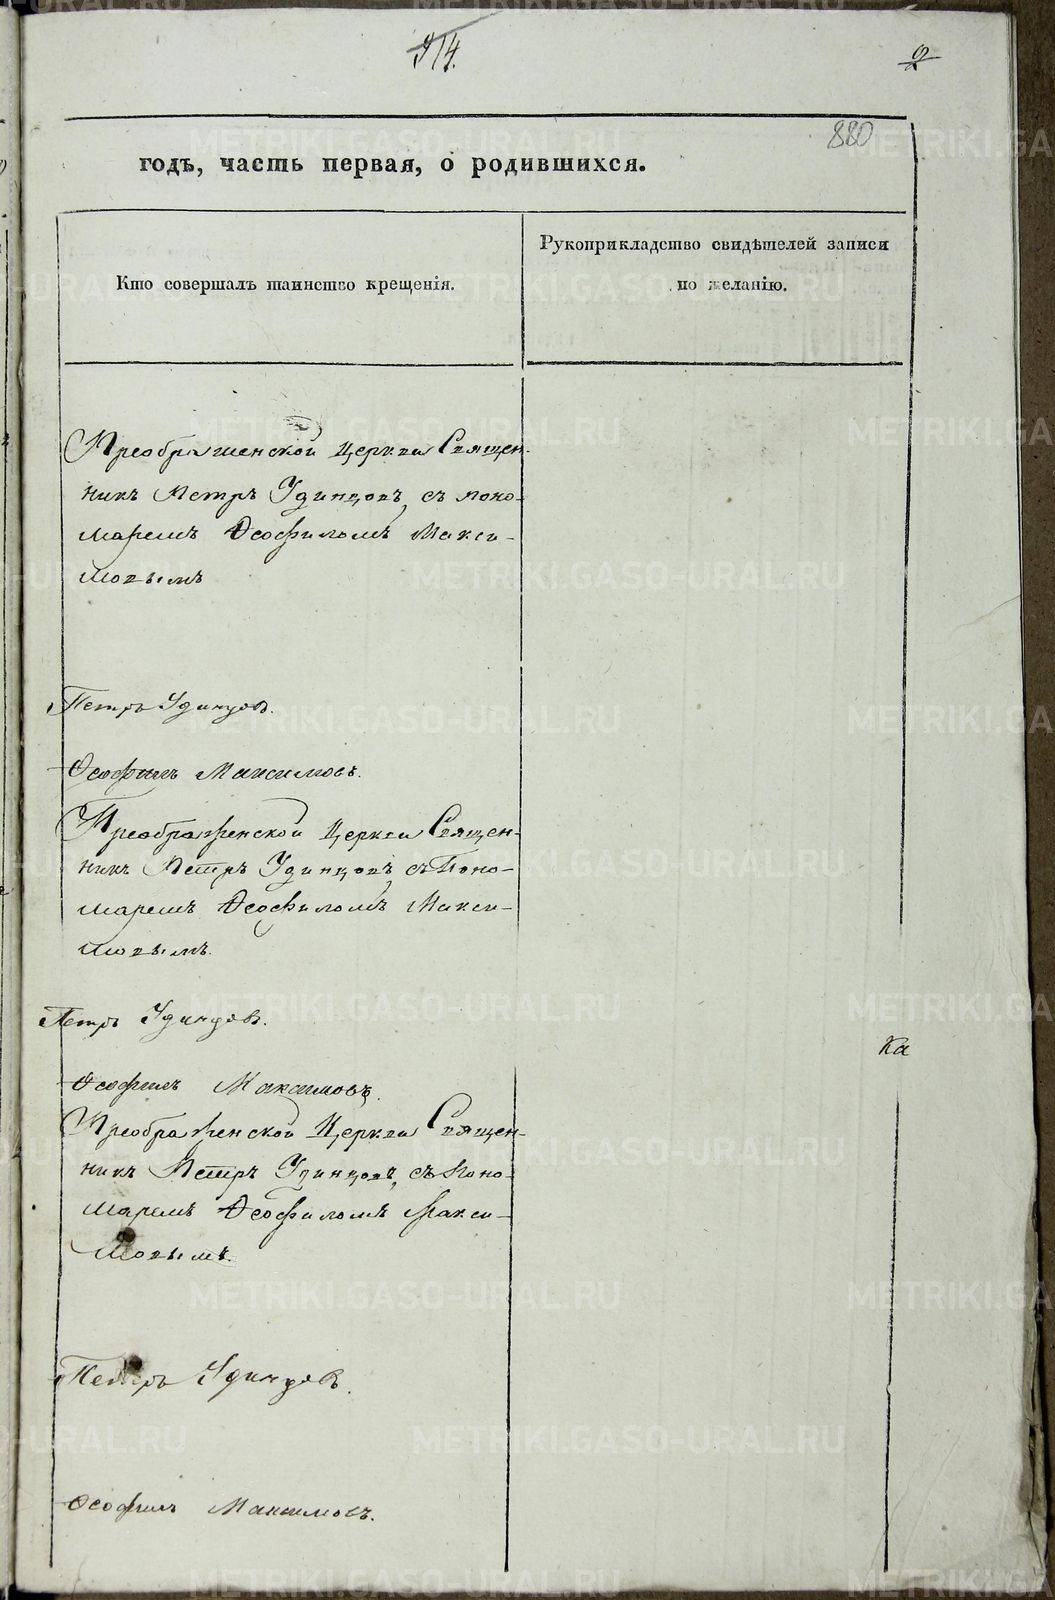 914.
2
880
годъ, часть первая, о родившихся.
Кто совершалъ таинство крещенія.
Рукоприкладство свидѣтелей записи
по желанію.
Преображенской Церкви Священ-
никъ Петръ Удинцовъ, съ поно-
маремъ Ѳеофиломъ Макси-
мовымъ
Петръ Удинцовъ.
Ѳеофилъ Максимовъ.
Преображенской Церкви Священ-
никъ Петръ Удинцовъ съ Поно-
маремъ Ѳеофиломъ Макси-
мовымъ.
Петръ Удинцовъ.
Ка
Ѳеофилъ Максимовъ.
Преображенской Церкви Священ-
никъ Петръ Удинцовъ, съ Поно-
маремъ Ѳеофиломъ Макси-
мовымъ.
Петръ Удинцовъ.
Ѳеофилъ Максимовъ.
METRIKI.GASO-URAL.RU